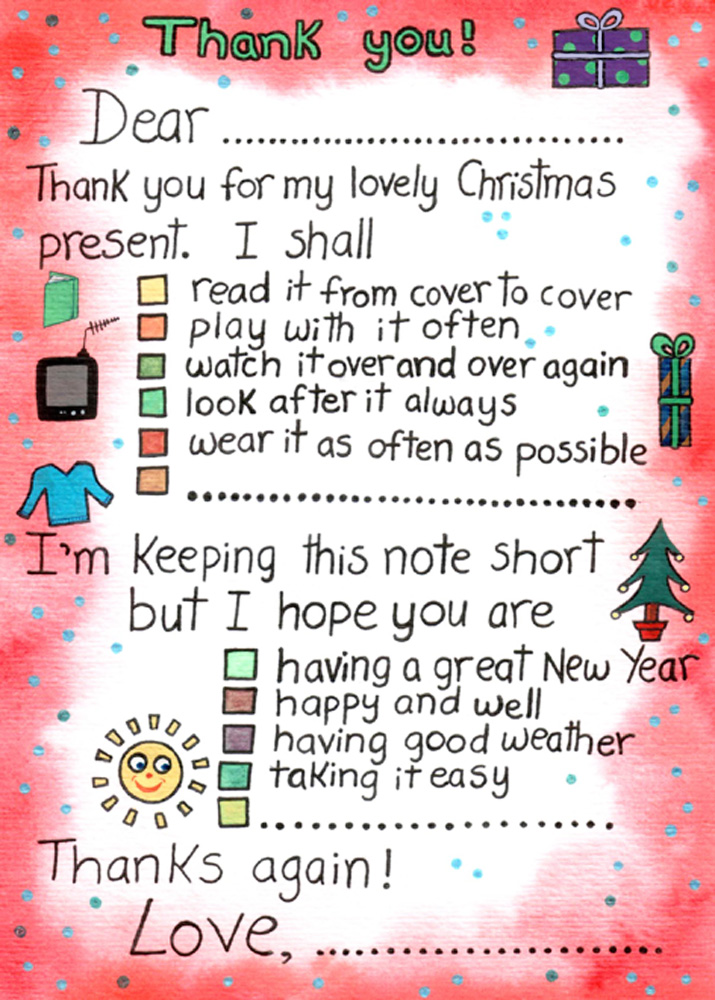 Thank you!
Dear ..............................
Thank you for my lovely Christmas
present. I shall
read it from cover to cover
play with it often
watch it over and over again
look after it always
wear it as often as possible
..............................
I'm keeping this note short
but I hope you are
having a great New Year
happy and well
having good weather
taking it easy
..............................
Thanks again!
Love, ..............................